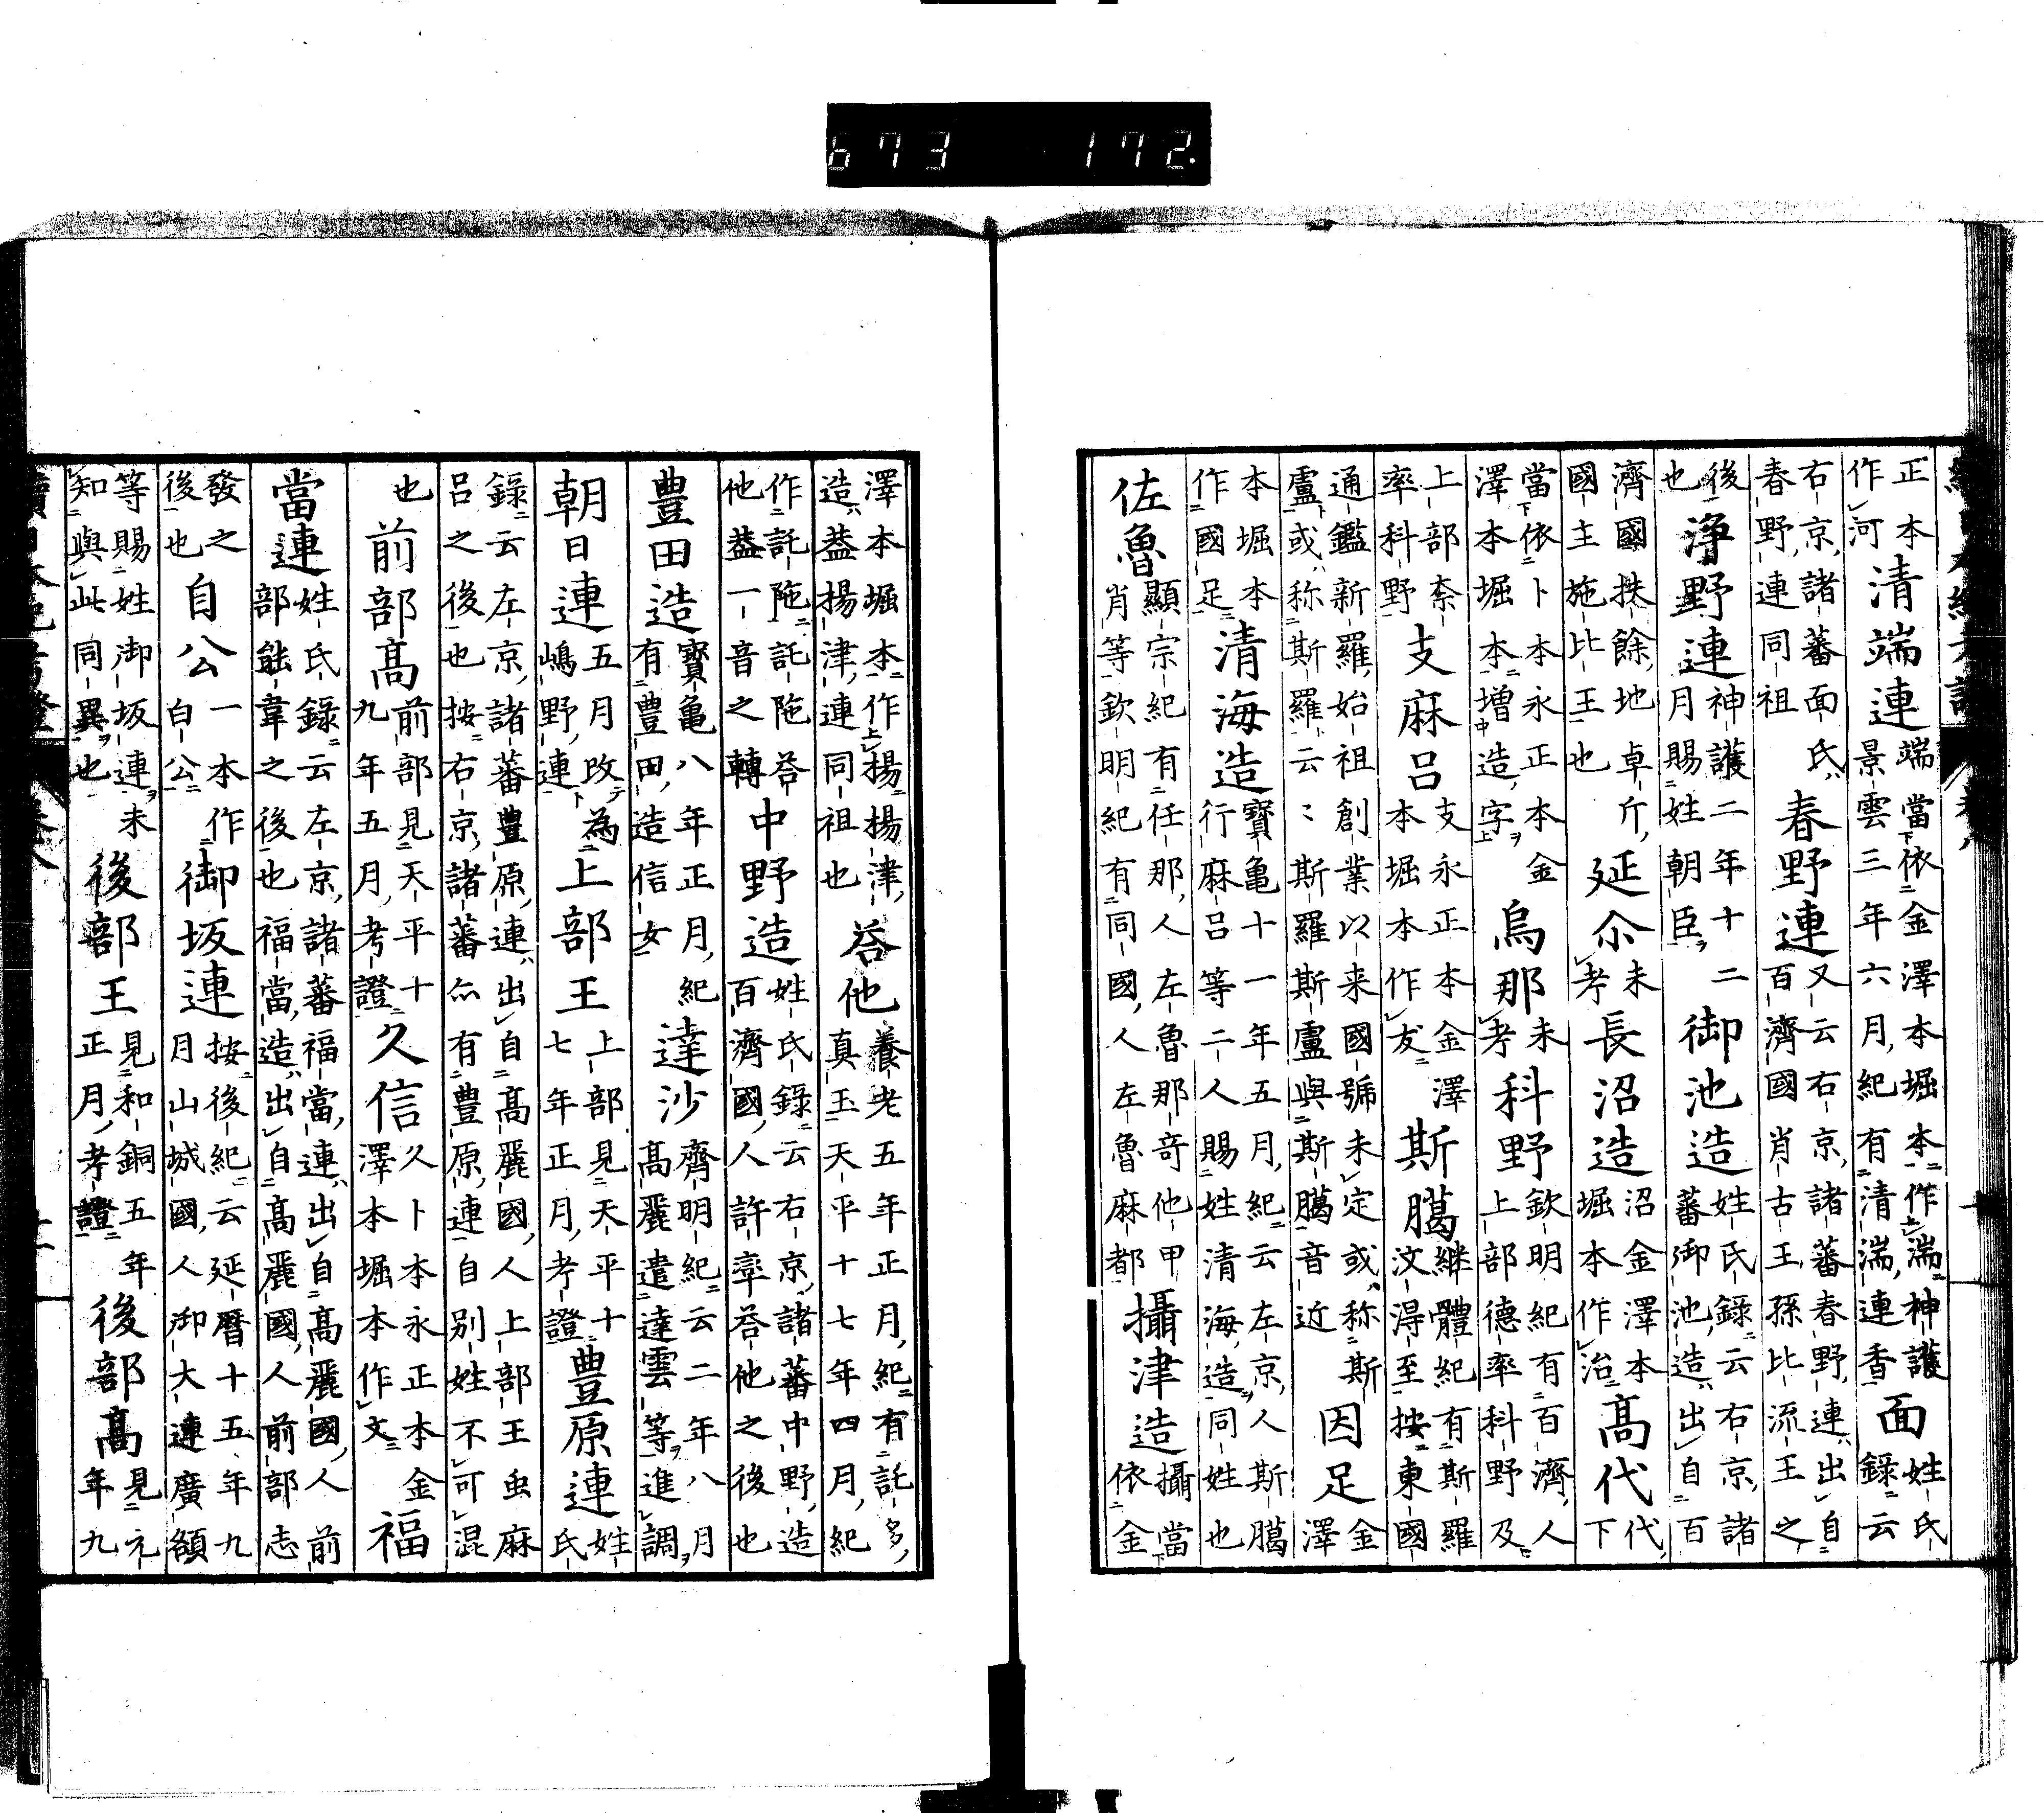 673 172.
正本
作河
清端連
端當依金澤本堀本作湍神護
景雲三年六月紀有清湍連香
面
姓氏
錄云
右京諸蕃面氏
春野連同祖
春野連
又云右京諸蕃春野連出自
百濟國肖古王孫比流王之
後
也
淨野連
神護二年十二
月賜姓朝臣
御池造
姓氏錄云右京諸
蕃御池造出自百
濟國扶餘地卓斤
國主施比王也
延尒
未
考
長沼造
沼金澤本
堀本作治
髙代
代
下
當依卜本永正本金
澤本堀本増造字
烏那
未
考
科野
欽明紀有百濟人
上部德率科野及
上部奈
率科野
支麻呂
支永正本金澤
本堀本作友
斯臈
継體紀有斯羅
汶淂至按東國
通鑑新羅始祖創業以来國號未定或称斯
盧或称斯羅云〻斯羅斯盧與斯臈音近
因足
金
澤
本堀本
作國足
清海造
寶亀十一年五月紀云左京人斯臈
行麻呂等二人賜姓清海造同姓也
佐魯
顯宗紀有任那人左魯那奇他甲
肖等欽明紀有同國人左魯麻都
攝津造
攝當
依金
澤本堀本作揚揚津
造葢揚津連同祖也
荅他
養老五年正月紀有託多
真玉天平十七年四月紀
作託陁託陁荅
他葢一音之轉
中野造
姓氏錄云右京諸蕃中野造
百濟國人許率荅他之後也
豊田造
寶亀八年正月紀
有豊田造信女
達沙
齊明紀云二年八月
髙麗遣達雲等進調
朝日連
五月改為
嶋野連
上部王
上部見天平十
七年正月考證
豊原連
姓
氏
錄云左京諸蕃豊原連出自髙麗國人上部王虫麻
呂之後也按右京諸蕃亦有豊原連自別姓不可混
也
前部髙
前部見天平十
九年五月考證
久信
久卜本永正本金
澤本堀本作文
福
當連
姓氏錄云左京諸蕃福當連出自髙麗國人前
部能韋之後也福當造出自髙麗國人前部志
發之
後也
自公
一本作
白公
御坂連
按後紀云延暦十五年九
月山城國人御大連廣額
等賜姓御坂連未
知與此同異也
後部王
見和銅五年
正月考證
後部髙
見元
年九